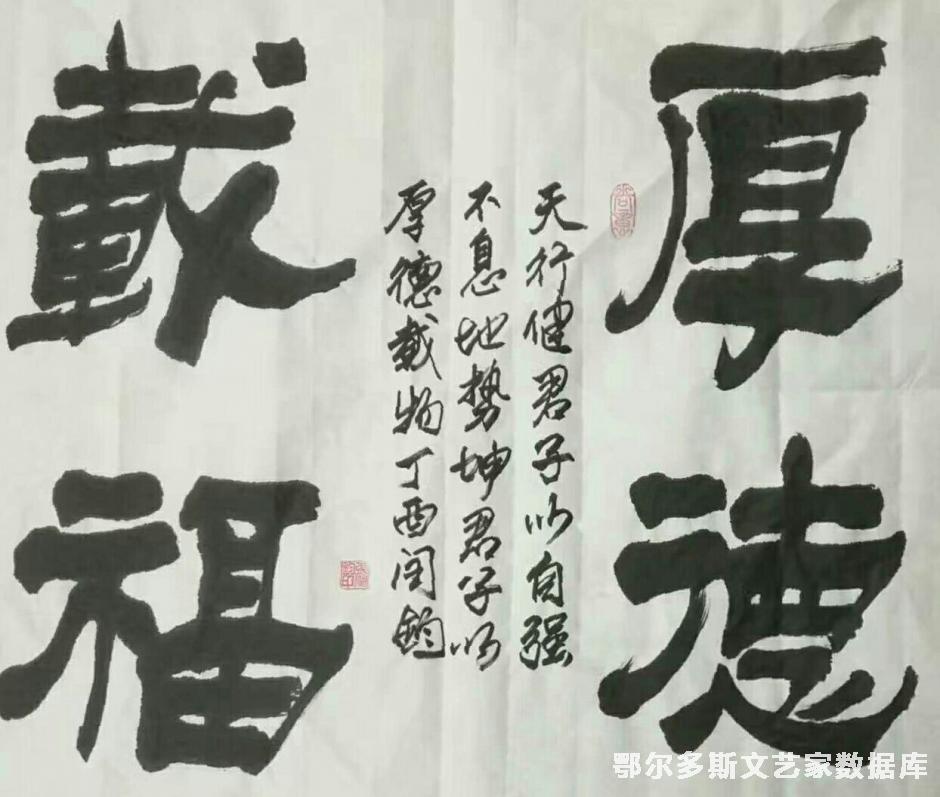 厚德
載福
天行健君子以自强
不息地势坤君子以
厚德载物丁酉
鄂尔多斯文艺家数据库